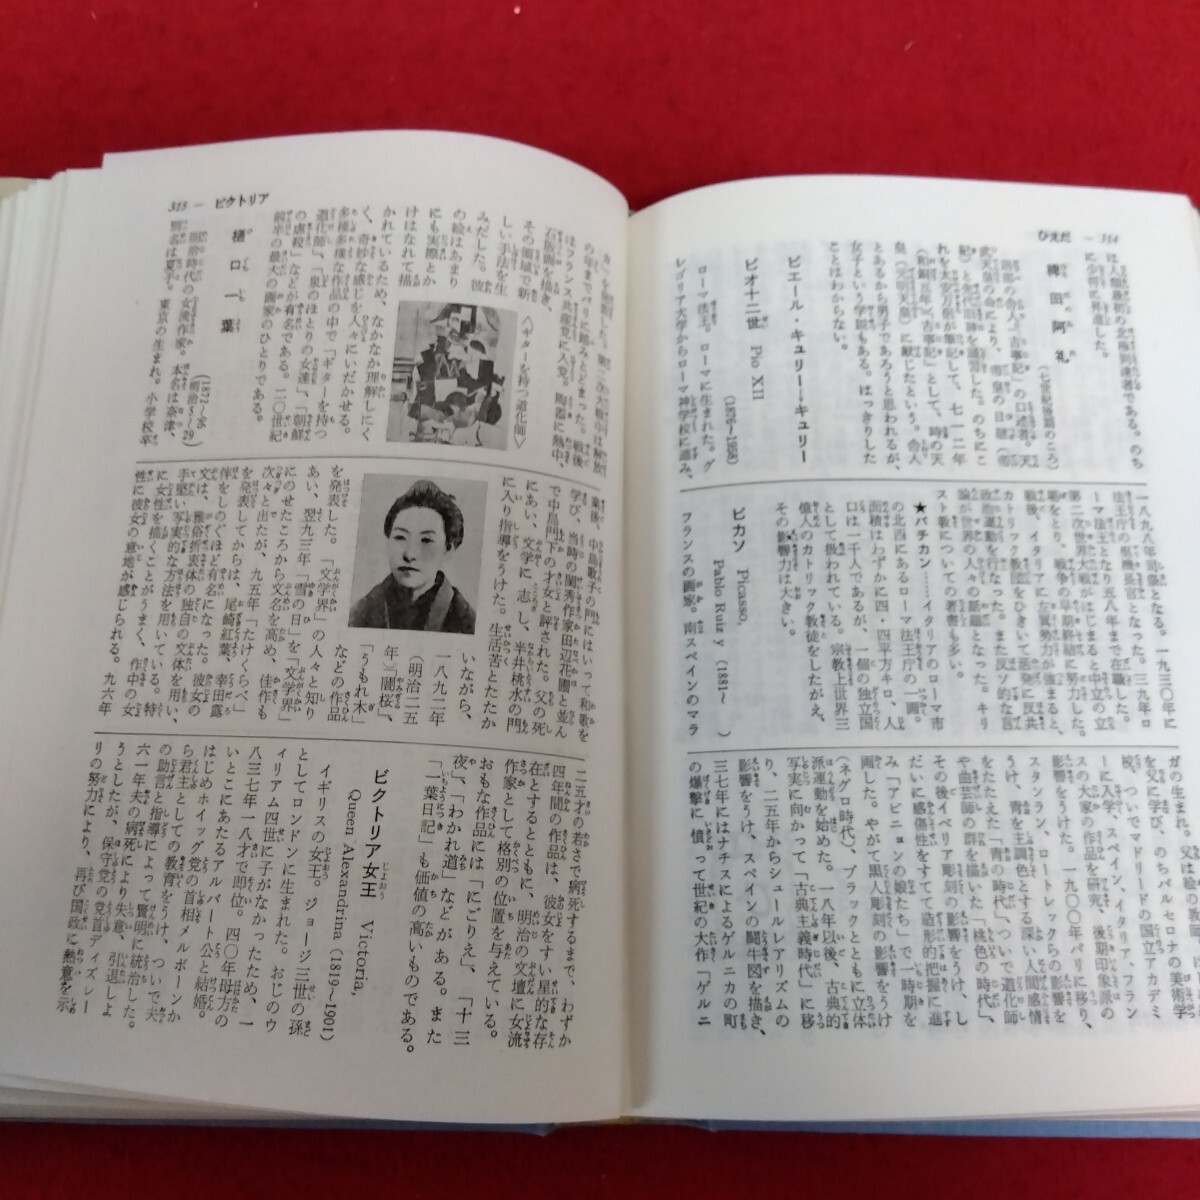 ひえだ — 314
は人類最初の北極到達者である。のち
に少将に昇進した。
稗田阿礼
（七世紀後期のころ）
ピエール・キュリー→キュリー
ピオ十二世 Pio XII
(1876～1958)
ローマ法王。ローマに生まれた。グ
レゴリア大学からローマ神学校に進み、
一八九九年司祭となる。一九三〇年に
法王庁の枢機長官となり、三九年ロ
ーマ法王となり五八年まで在職した。
第二次世界大戦がはじまると中立の立
場をとり、戦争の早期終結に努力した。
今後、イタリアに左翼勢力が強まると、
カトリック教徒をひきいて活発に反共
政治運動を行なった。また反ソ的な言
論が世界の人々の話題となった。キリ
スト教についての著書も多い。
★バチカン……イタリアのローマ市
の北西にあるローマ法王庁の一画。
面積はわずかに四・四平方キロ、人
口は一千人であるが、一個の独立国
として扱われている。宗教上世界三
億人のカトリック教徒をしたがえ、
その影響力は大きい。
ピカソ Picasso,
Pablo Ruiz y (1881～ )
フランスの画家。南スペインのマラ
ガの生まれ。父は美術教
校、ついでマドリードの国立アカデミ
ーに入学。スペイン、イタリア、フラン
スの大家の作品を研究、後期印象派の
影響をうけた。一九〇〇年パリに移り、
スタンラン、ロートレックらの影響を
うけ、青を主調色とする深い人間感情
をたたえた「青の時代」、ついで道化師
や曲芸師の群を描いた「桃色の時代」、
その後イベリア彫刻の影響をうけ、し
だいに感傷性をすてて造形的把握に進
み「アビニョンの娘たち」で一時期を
画した。やがて黒人彫刻の影響をうけ
（ネグロ時代）、ブラックとともに立体
派運動を始めた。一八年以後、古典的
写実に向かって「古典主義時代」に移
り、二五年からシュールレアリズムの
影響をうけ、スペインの闘牛図を描き、
三七年にはナチスによるゲルニカの町
の爆撃に憤って世紀の大作「ゲルニ
315 — ビクトリア
カ」を制作した。第二次大戦中は解放
の年までパリに踏みとどまった。戦後
はフランス共産党に入党。陶器に熱中、
石版画を描き、
その領域で新
しい手法を生
みだした。彼
の絵はあまり
にも実際とか
けはなれて描
かれているため、なかなか理解しにく
く、奇妙な感じを人々にいだかせる。
多種多様な作品の中で「ギターを持つ
道化師」、「泉のほとりの女達」、「朝鮮
の虐殺」などが有名である。二〇世紀
前半の最大の画家のひとりである。
〈ギターを持つ道化師〉
樋口一葉
(1872～96)
(明治5～29)
明治時代の女流作家。本名は奈津、
別名は夏子。東京の生まれ。小学校卒
業後、中島歌子の門にはいって和歌を
学び、当時の閨秀作家田辺花圃と並ん
で中島門下の才女と評された。父の死
にあい、文学に志し、半井桃水の門
に入り指導をうけた。生活苦とたたか
いながら、
一八九二年
（明治二五
年）「闇桜」、
「うもれ木」
などの作品
を発表した。「文学界」の人々と知り
あい、翌九三年「雪の日」を「文学界」
にのせたころから文名を高め、佳作も
次々と出たが、九五年「たけくらべ」
を発表してからは、尾崎紅葉、幸田露
伴をしのぐほど有名になった。彼女の
文は、雅俗折衷体の独自の文体を用い、
手堅い写実的な方法を用いている。特
に女性を描くことがうまく、作中の女
性に彼女の意地が感じられる。九六年
二五才の若さで病死するまで、わずか
四年間の作品は、彼女をすい星的な存
在とするとともに、明治の文壇に女流
作家として格別の位置を与えている。
おもな作品には「にごりえ」、「十三
夜」、「わかれ道」などがある。また
「一葉日記」も価値の高いものである。
ビクトリア女王 Victoria,
Queen Alexandrina (1819～1901)
イギリスの女王。ジョージ三世の孫
としてロンドンに生まれた。おじのウ
ィリアム四世に子がなかったため、一
八三七年一八才で即位。四〇年母方の
いとこにあたるアルバート公と結婚。
はじめホイッグ党の首相メルボーンか
ら君主としての教育をうけ、ついで夫
の助言と指導によって賢明に統治した。
六一年夫の病死により失意、引退しよ
うとしたが、保守党の党首ディズレー
リの努力により、再び国政に熱意を示